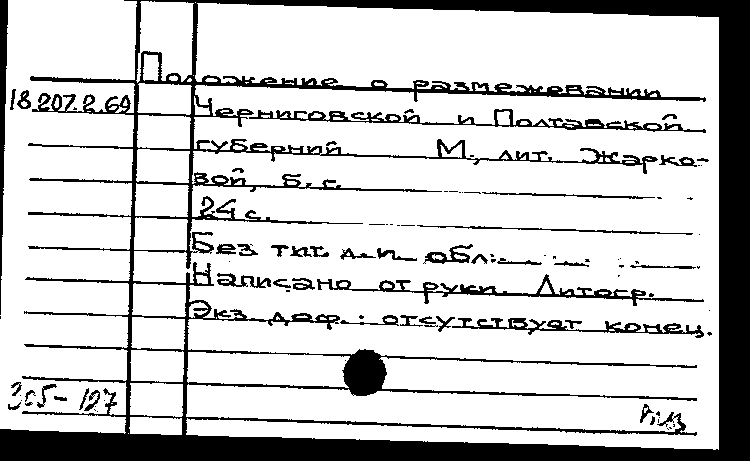 Положение о размежевании
18.207.2.69 Черниговской и Полтавской
губерний М., лит. Жарко-
вой, б. г.
24 с.
Без тит. л. и обл.
Написано от руки. Литогр.
Экз. деф.: отсутствует конец.
305-127